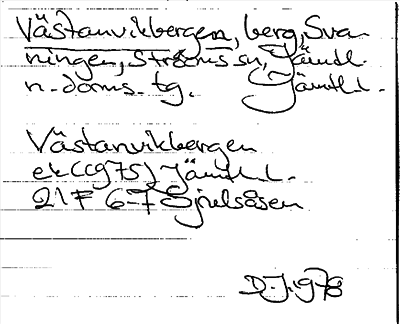 Västanvikbergen, berg, Sva-
ningen, Ströms sn, Jämtl.
n. doms. tg. Jämtl. l.
Västanvikbergen
ek (CG 75) Jämtl. l.
21 F 6-7 Sjulsåsen
D. J. 1978